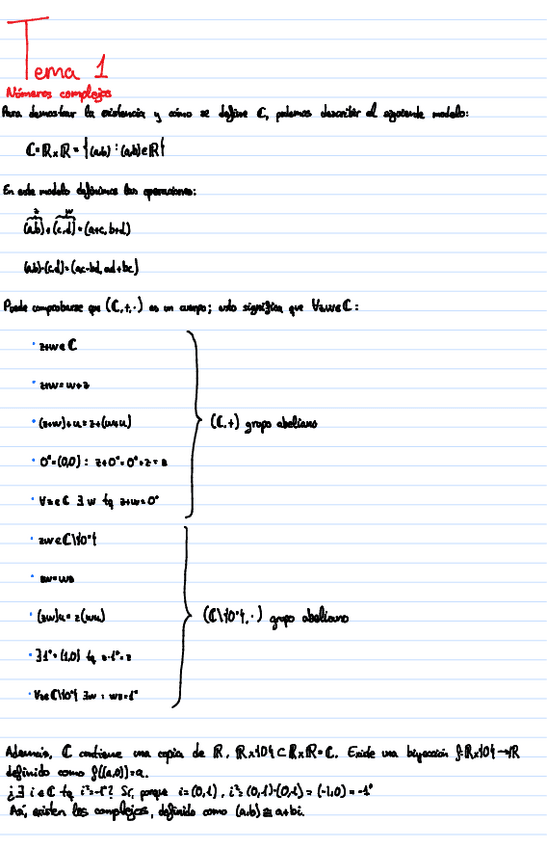 Tema 1
Números complejos
Para demostrar la existencia y cómo se define ℂ, podemos describir el siguiente modelo:
ℂ=ℝxℝ={(a,b) : (a,b)∈ℝ}
En este modelo definimos las operaciones:
z w
(a,b)+(c,d)=(a+c, b+d)
(a,b)·(c,d)=(ac-bd, ad+bc)
Puede comprobarse que (ℂ,+,·) es un cuerpo; esto significa que ∀z,w∈ℂ:
· z+w∈ℂ
· z+w=w+z
· (z+w)+u=z+(w+u)
· 0*=(0,0) : z+0*=0*+z=z
· ∀z∈ℂ ∃w tq z+w=0*
(ℂ,+) grupo abeliano
· zw∈ℂ\{0*}
· zw=wz
· (zw)u=z(wu)
· ∃1*=(1,0) tq z·1*=z
· ∀z∈ℂ\{0*} ∃w : wz=1*
(ℂ\{0*},·) grupo abeliano
Además, ℂ contiene una copia de ℝ, ℝx{0}⊂ℝxℝ=ℂ. Existe una biyección f:ℝx{0}→ℝ
definido como f((a,0))=a.
¿∃ i∈ℂ tq i²=-1*? Sí, porque i=(0,1), i²=(0,1)·(0,1)=(-1,0)=-1*
Así, existen los complejos, definido como (a,b)≅a+bi.